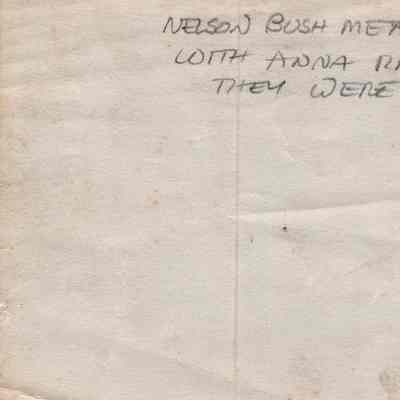 NELSON BUSH MET
WITH ANNA
THEY WERE